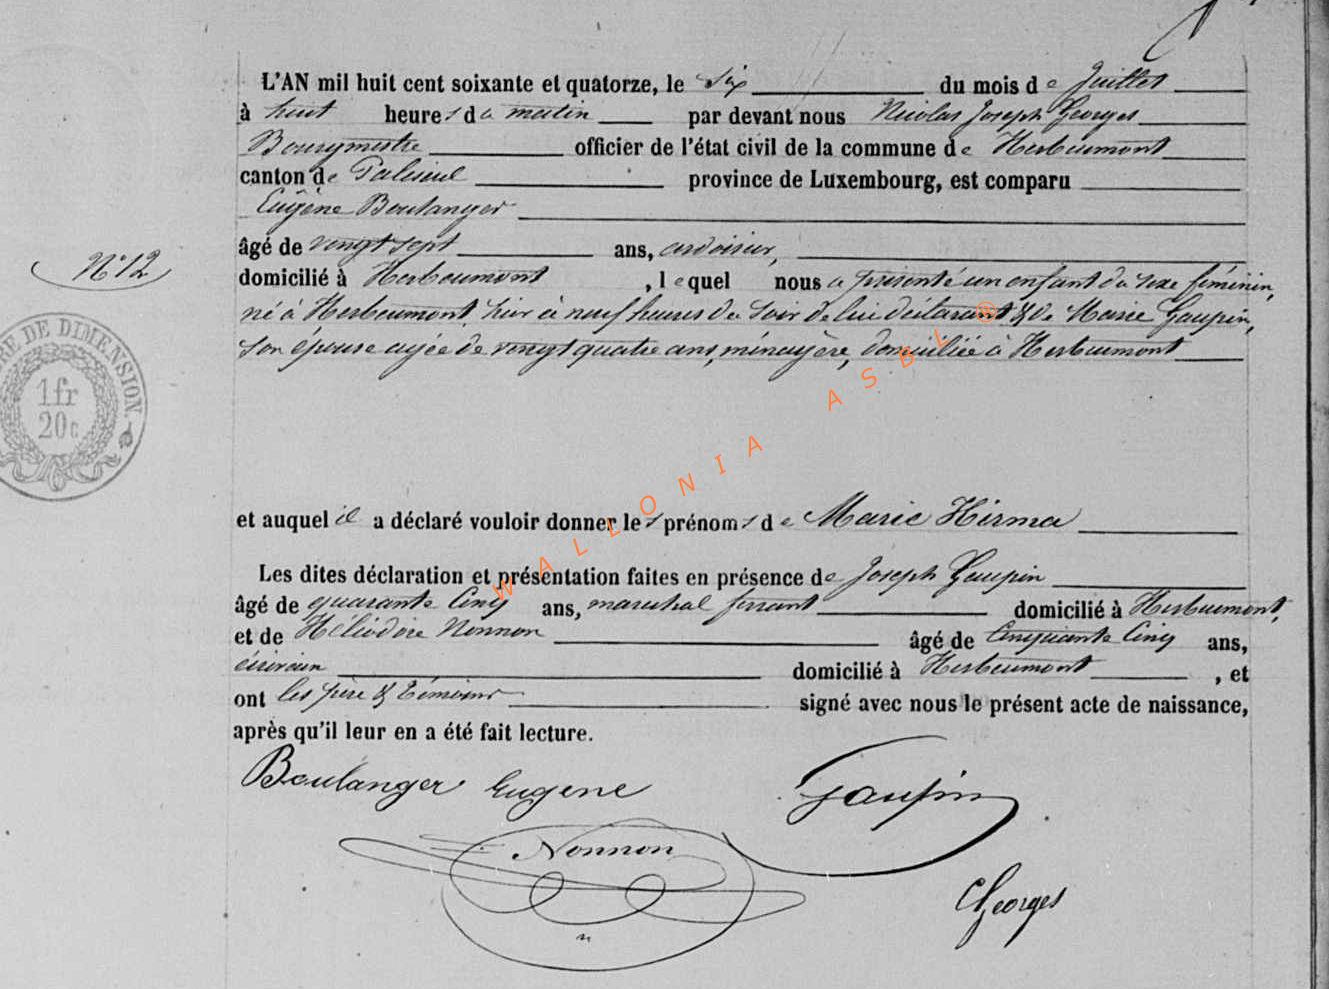 L'AN mil huit cent soixante et quatorze, le Six du mois de Juillet
à huit heures du matin par devant nous Nicolas Joseph Georges
Bourgmestre officier de l'état civil de la commune de Herbeumont
canton de Paliseul province de Luxembourg, est comparu
Eugène Boulanger
âgé de vingt sept ans, ardoisier,
N°12
domicilié à Herbeumont, lequel nous a présenté un enfant du sexe féminin,
né à Herbeumont, hier à neuf heures du soir de lui déclarant & de Marie Gaupin,
son épouse agée de vingt quatre ans, ménagère, domiciliée à Herbeumont
RE DE DIMENSION
1 fr
20 c
et auquel il a déclaré vouloir donner les prénoms de Marie Hirma
Les dites déclaration et présentation faites en présence de Joseph Gaupin
âgé de quarante cinq ans, marechal ferrant domicilié à Herbeumont,
et de Héliodore Nonnon âgé de cinquante cinq ans,
écrivain domicilié à Herbeumont, et
ont les père & témoins signé avec nous le présent acte de naissance,
après qu'il leur en a été fait lecture.
Boulanger Eugene Gaupin
Nonnon
Georges
WALLONIA ASBL ®